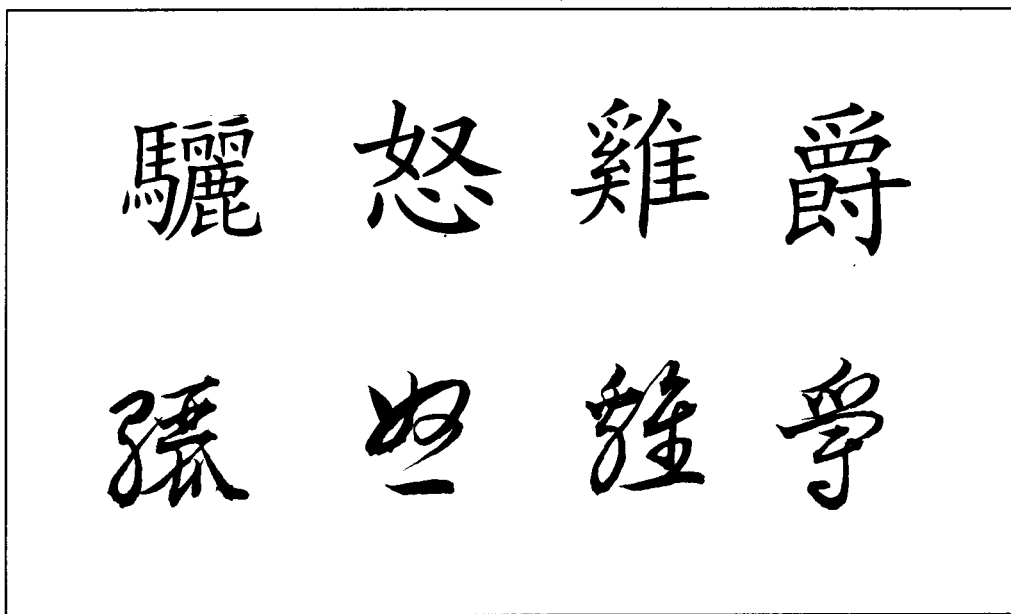 驪怒雞爵
驪怒雞爵